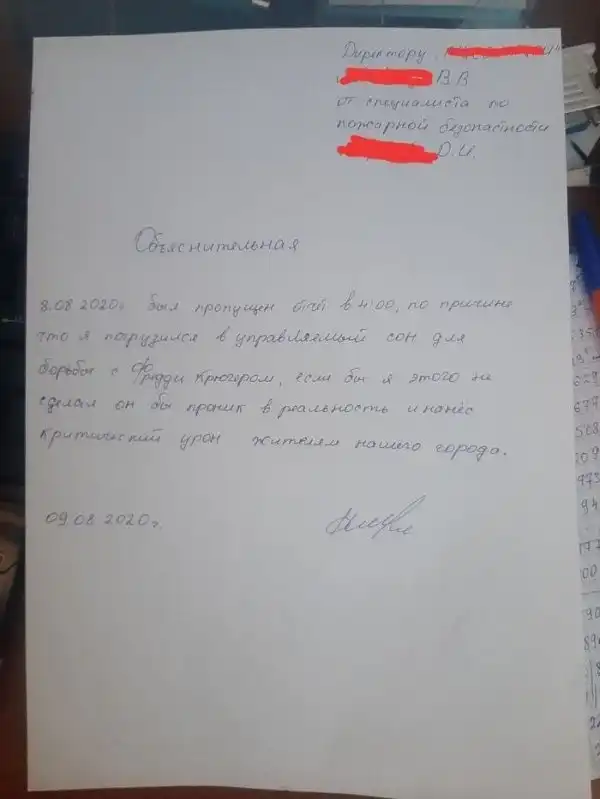 Директору
В.В
от специалиста по
пожарной безопасности
О.И.
Объяснительная
8.08 2020г. был пропущен отчёт в 4:00, по причине
что я погрузился в управляемый сон для
борьбы с Фредди Крюгером, если бы я этого не
сделал он бы проник в реальность и нанёс
критический урон жителям нашего города.
09.08 2020г.